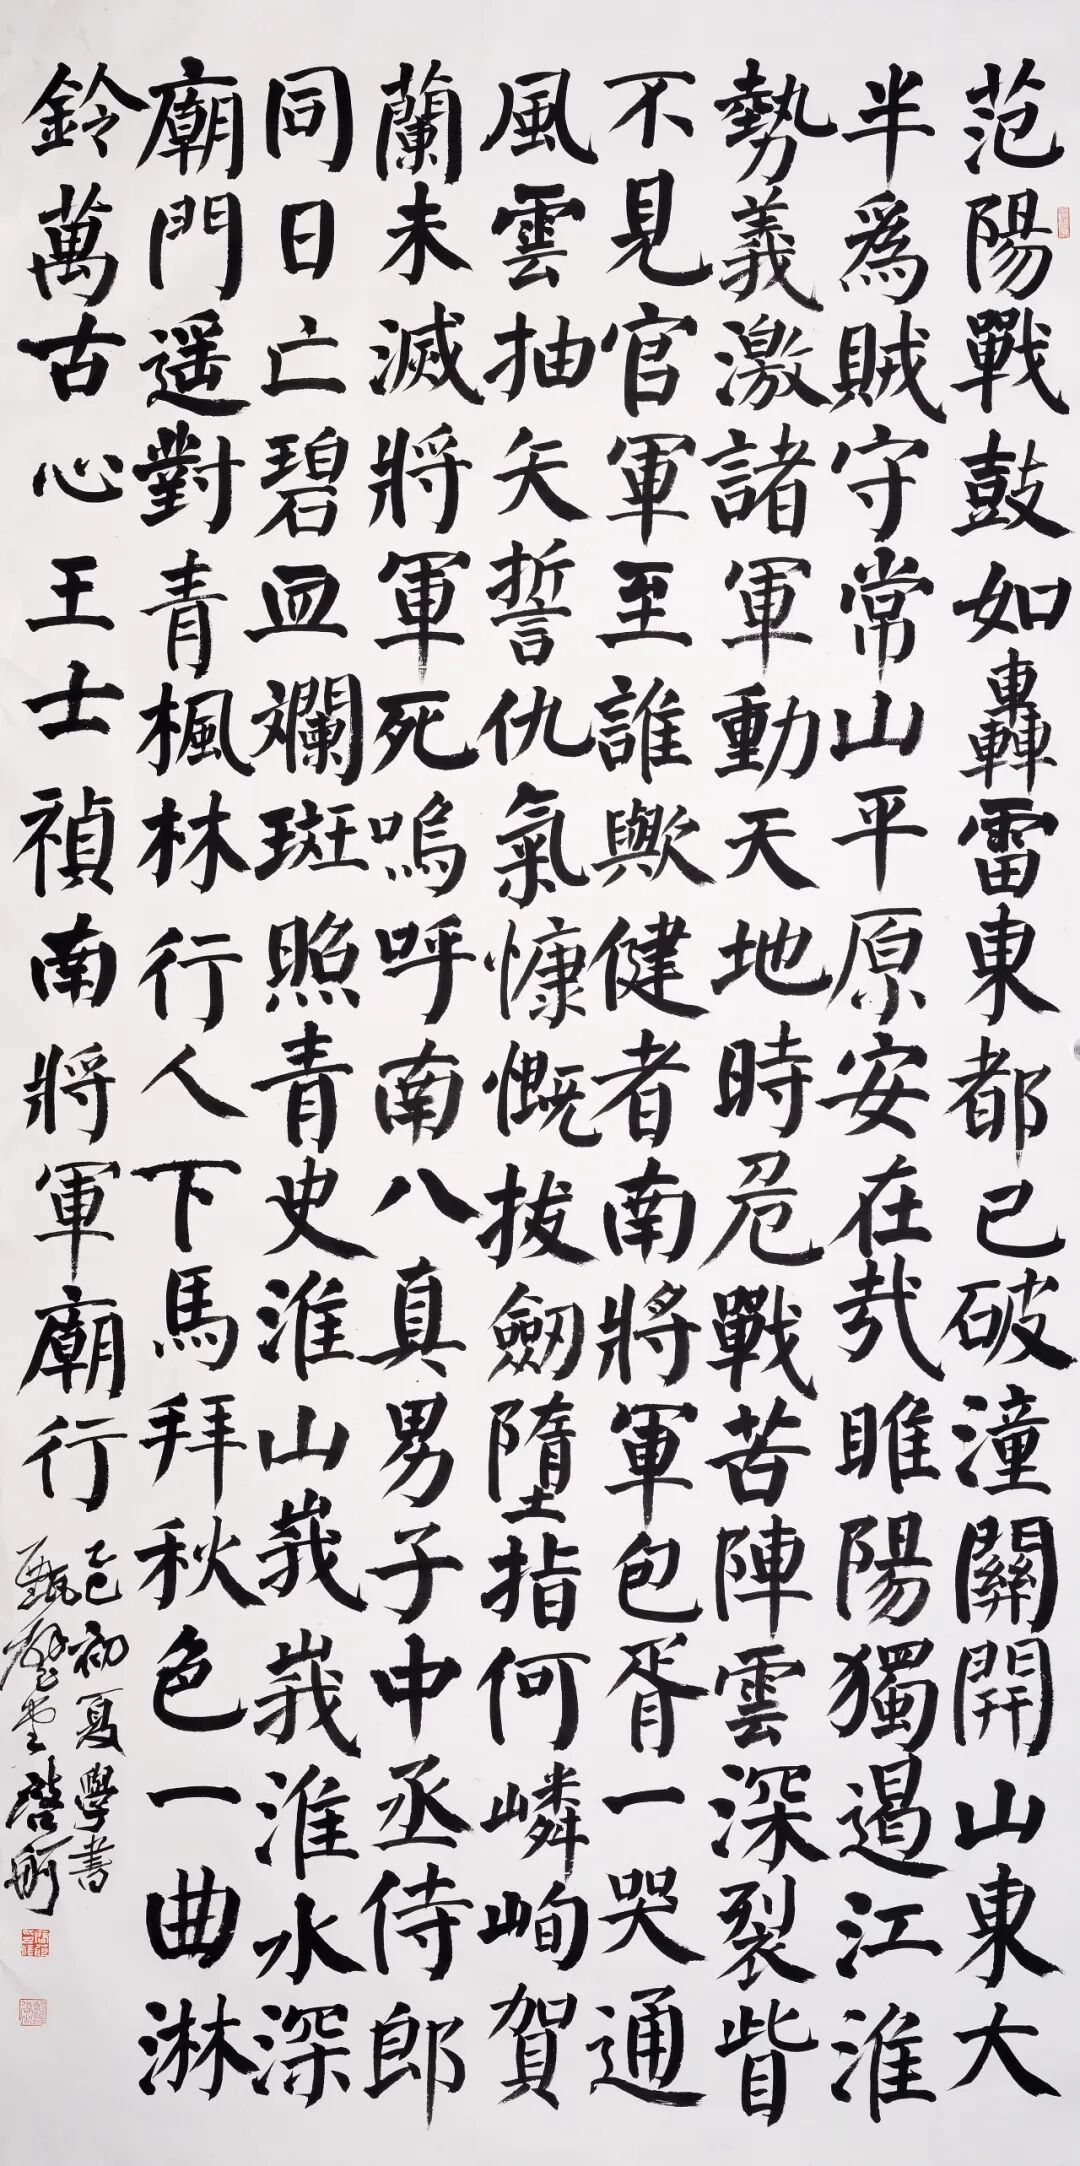 范陽戰鼓如轟雷東都已破潼關開山東大
半為賊守常山平原安在哉睢陽獨遏江淮
勢義激諸軍動天地時危戰苦陣雲深裂眥
不見官軍至誰歟健者南將軍包胥一哭通
風雲抽矢誓仇氣慷慨拔劒墮指何嶙峋賀
蘭未滅將軍死嗚呼南八真男子中丞侍郎
同日亡碧血斕斑照青史淮山峩峩淮水深
廟門遥對青楓林行人下馬拜秋色一曲淋
鈴萬古心王士禎南將軍廟行
乙巳初夏學書